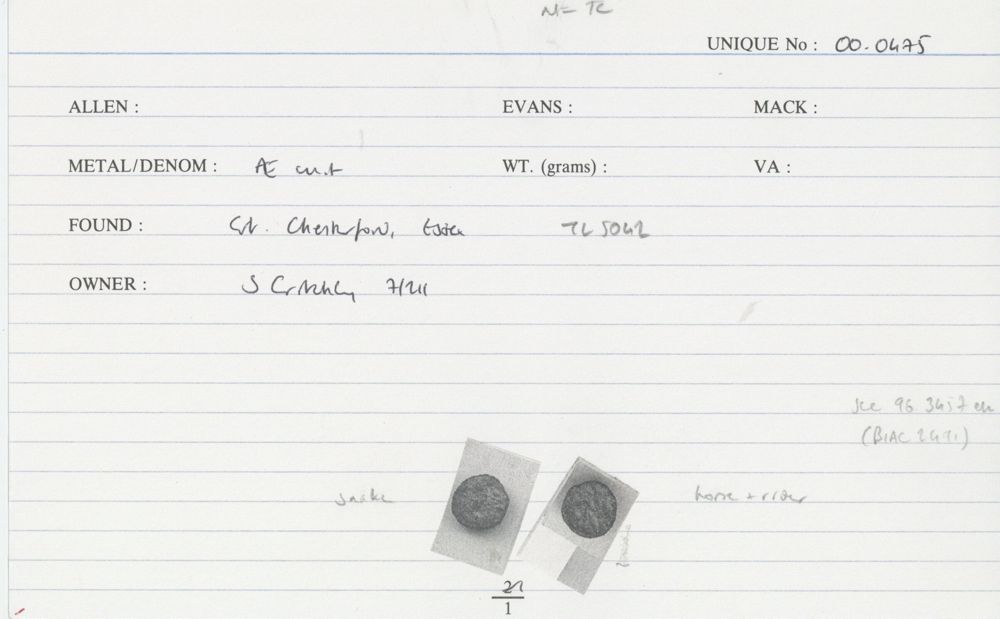 UNIQUE No : 00.0475
ALLEN : EVANS : MACK :
METAL/DENOM : Æ unit WT. (grams) : VA :
FOUND : Gt. Chesterford, Essex TL 5042
OWNER : S Critchley 7/211
see 96.3457
(BIAC 2491)
snake horse + rider
2/1
1